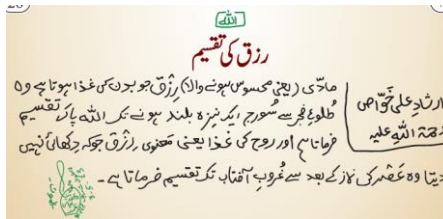 اللہ
رزق کی تقسیم
ارشادِ علی خَوّاص
رحمۃ اللہ علیہ
مادّی (یعنی محسوس ہونے والا) رِزْق جو بدن کی غذا ہوتا ہے وہ
طُلوعِ فجر سے سُورج ایک نیزہ بلند ہونے تک اللہ پاک تقسیم
فرماتا ہے اور روح کی غذا یعنی مَعنوی رِزْق جو کہ دِکھائی نہیں
دیتا وہ عَصْر کی نماز کے بعد سے غُروبِ آفتاب تک تقسیم فرماتا ہے۔